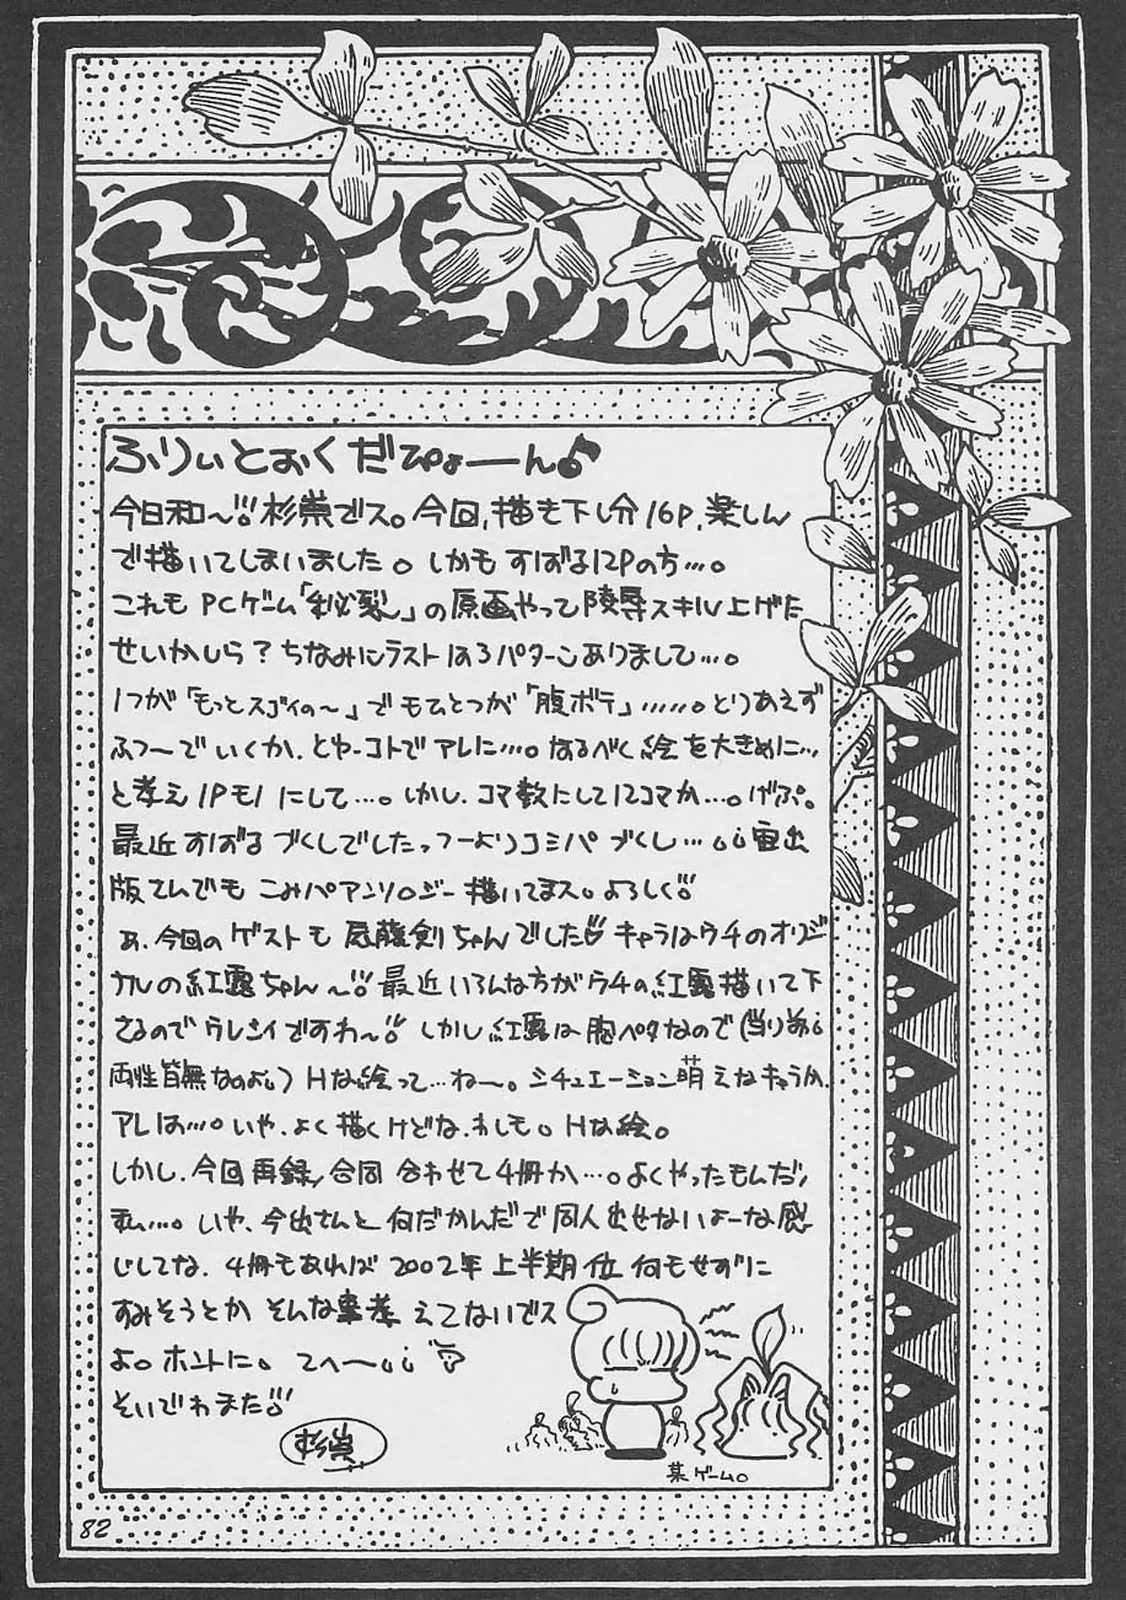 ふりぃとおくだぴょーん♪
今日和〜 杉崇でス。今回、描き下し分16P、楽しん
で描いてしまいました。しかもすばる12Pの方…。
これもPCゲーム「 」の原画やって陵辱スキル上げた
せいかしら？ちなみにラストは3パターンありまして…。
1つが「もっとスゴイの〜」でモひとつが「腹ボテ」……。とりあえず
ふつーでいくか、とゆーコトでアレに…。なるべく絵を大きめに…
と考え1Pモ1にして…。しかし、コマ数にして12コマか…。げぷ。
最近すばるづくしでしたっつーよりコミパづくし… 宙出
版さんでもこみパアンソロジー描いてまス。よろしく
あ、今回のゲストも 藤剣ちゃんでした キャラはウチのオリジ
ナルの紅露ちゃん〜 最近いろんな方がウチの紅露描いて下
さるのでウレシイですわ〜 しかし紅露は胸ペタなので(当り前
両性皆無なのよ)Hな絵って…ね〜。シチュエーション萌えなキャラか、
アレは…。いや、よく描くけどな、わしも。Hな絵。
しかし、今回再録、合同合わせて4冊か…。よくやったもんだ、
私…。いや、今出さんと何だかんだで同人出せないよーな感
じしてな、4冊もあれば2002年上半期位何もせずに
すみそうとかそんな事考えてないでス
よ。ホントに。てへ〜
そいでわまた
杉崇
某ゲーム。
82